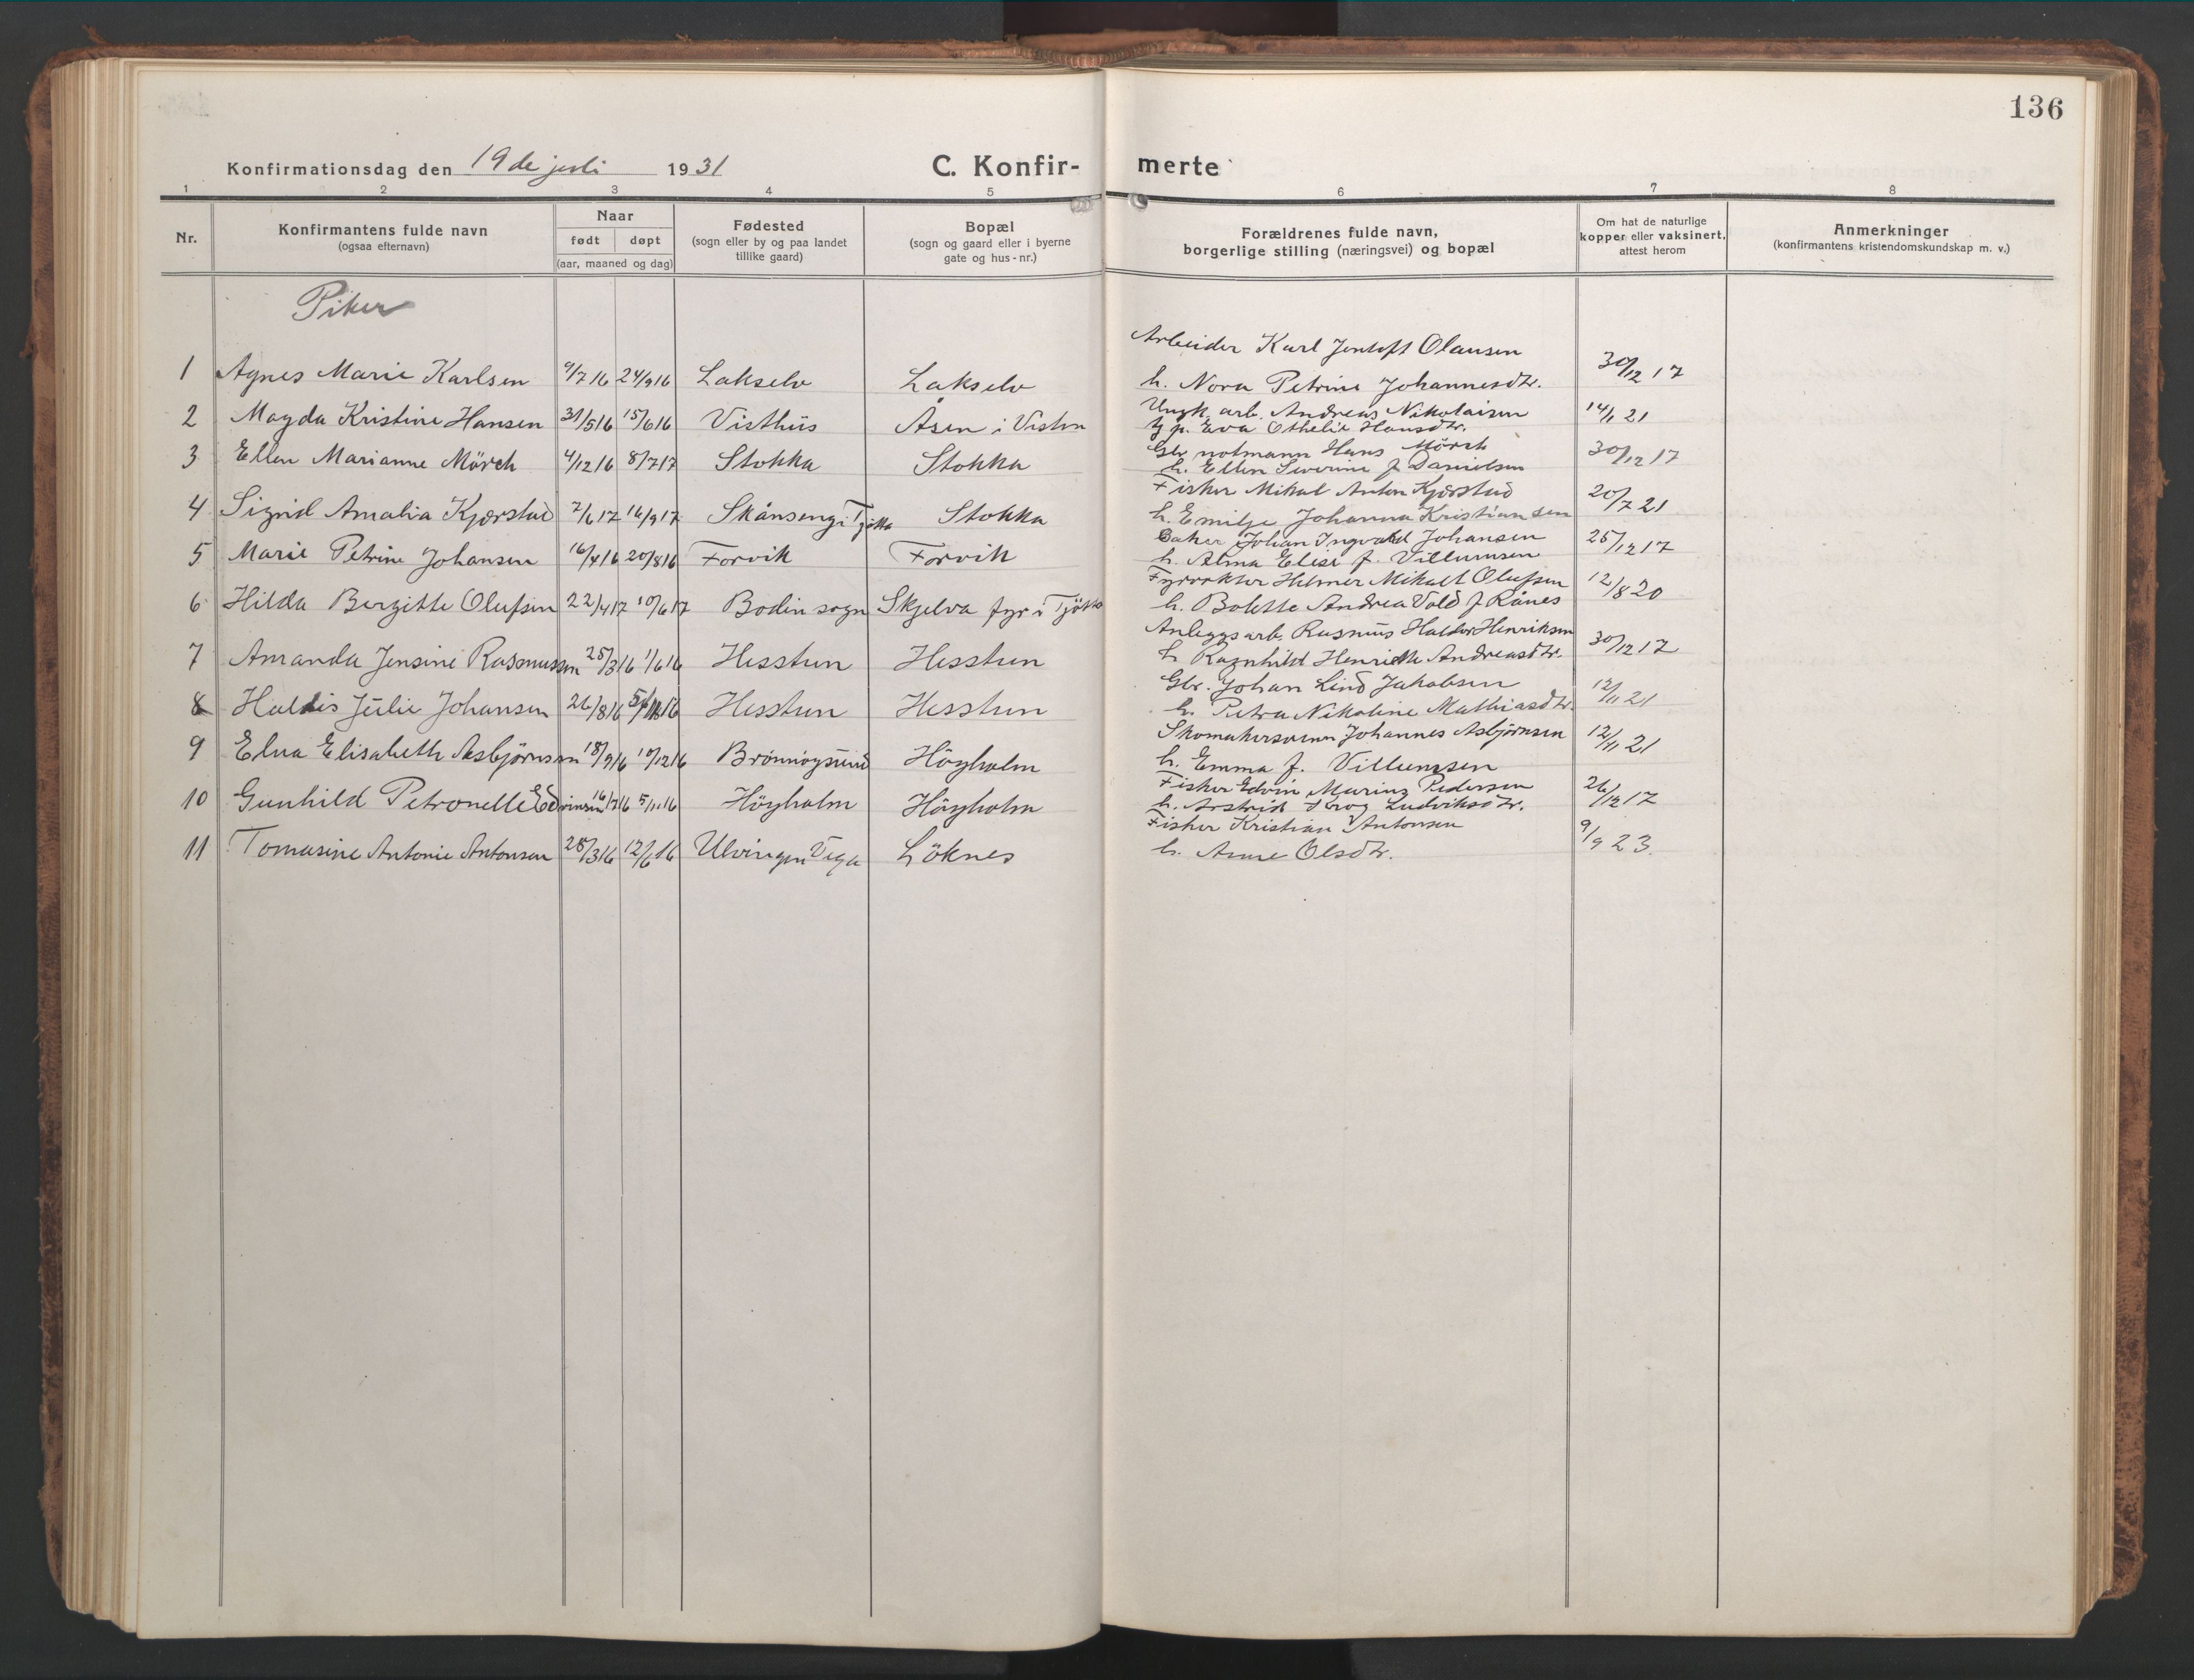 136
Konfirmationsdag den 19 de juli 1931
C. Konfir-
merte
1 2 3 4 5 6 7 8
Nr.
Konfirmantens fulde navn
(ogsaa efternavn)
Naar
født døpt
(aar, maaned og dag)
Fødested
(sogn eller by og paa landet
tillike gaard)
Bopæl
(sogn og gaard eller i byerne
gate og hus-nr.)
Forældrenes fulde navn,
borgerlige stilling (næringsvei) og bopæl
Om hat de naturlige
kopper eller vaksinert,
attest herom
Anmerkninger
(konfirmantens kristendomskundskap m. v.)
Piker
Arbeider Karl Jentoft Olausen
1 Agnes Marie Karlsen 9/7 16 24/9 16 Lakselv Lakselv h. Nora Petrine Johannesdtr. 30/12 17
Ungk. arb. Andreas Nikolaisen
2 Magda Kristine Hansen 31/5 16 15/6 16 Visthus Åsen i Visten g p. Eva Othelie Hansdtr. 14/1 21
Gbr notmann Hans Mörch
3 Ellen Marianne Mörch 4/12 16 8/7 17 Stokka Stokka h. Ellen Severine f Danielsen 30/12 17
Fisker Mikal Anton Kjærstad
4 Signid Amalia Kjærstad 7/6 17 16/9 17 Skånsengi Tjøtta Stokka h. Emilje Johanna Kristiansen 20/7 21
Baker Johan Ingvald Johansen
5 Marie Petrine Johansen 16/4 16 20/8 16 Forvik Forvik h. Alma Elise f. Villumsen 25/12 17
Fyrvokter Helmer Mikael Olufsen
6 Hilda Bergitte Olufsen 22/4 17 10/6 17 Bodin sogn Skjelva fyr i Tjøtta h. Bolette Andrea Vold f Rånes 12/8 20
Anleggsarb. Rasmus Haldor Henriksen
7 Amanda Jensine Rasmussen 25/3 16 1/6 16 Hesstun Hesstun h Ragnhild Henriette Andreasdtr. 30/12 17
Gbr. Johan Lind Jakobsen
8 Haldis Julie Johansen 26/8 16 5/11 16 Hesstun Hesstun h. Petra Nikoline Mathiasdtr. 12/11 21
Skomakersvenn Johannes Asbjørnsen
9 Elna Elisabeth Asbjørnsen 18/9 16 10/12 16 Brønnøysund Höyholm h. Emma f. Villumsen 12/11 21
Fisker Edvin Marius Pedersen
10 Gunhild Petronelle Edvinsen 16/7 16 5/11 16 Höyholm Höyholm h. Astrid Krog Ludviksdtr. 26/12 17
Fisker Kristian Antonsen
11 Tomasine Antonie Antonsen 28/3 16 12/6 16 Ulvingen Vega Löknes h. Anne Olsdtr. 9/9 23.